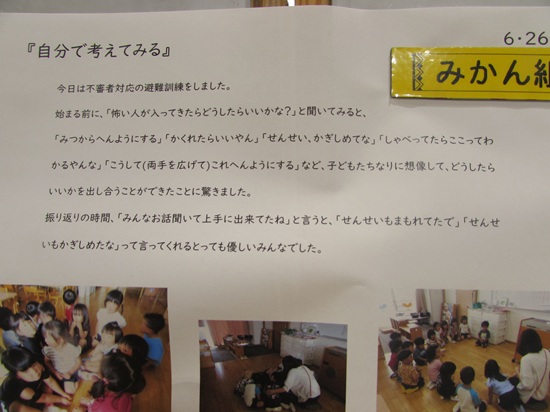 『自分で考えてみる』
6・26
みかん組
今日は不審者対応の避難訓練をしました。
始まる前に、「怖い人が入ってきたらどうしたらいいかな?」と聞いてみると、
「みつからへんようにする」「かくれたらいいやん」「せんせい、かぎしめてな」「しゃべってたらここってわ
かるやんな」「こうして(両手を広げて)これへんようにする」など、子どもたちなりに想像して、どうしたら
いいかを出し合うことができたことに驚きました。
振り返りの時間、「みんなお話聞いて上手に出来てたね」と言うと、「せんせいもまもれてたで」「せんせ
いもかぎしめたな」って言ってくれるとっても優しいみんなでした。